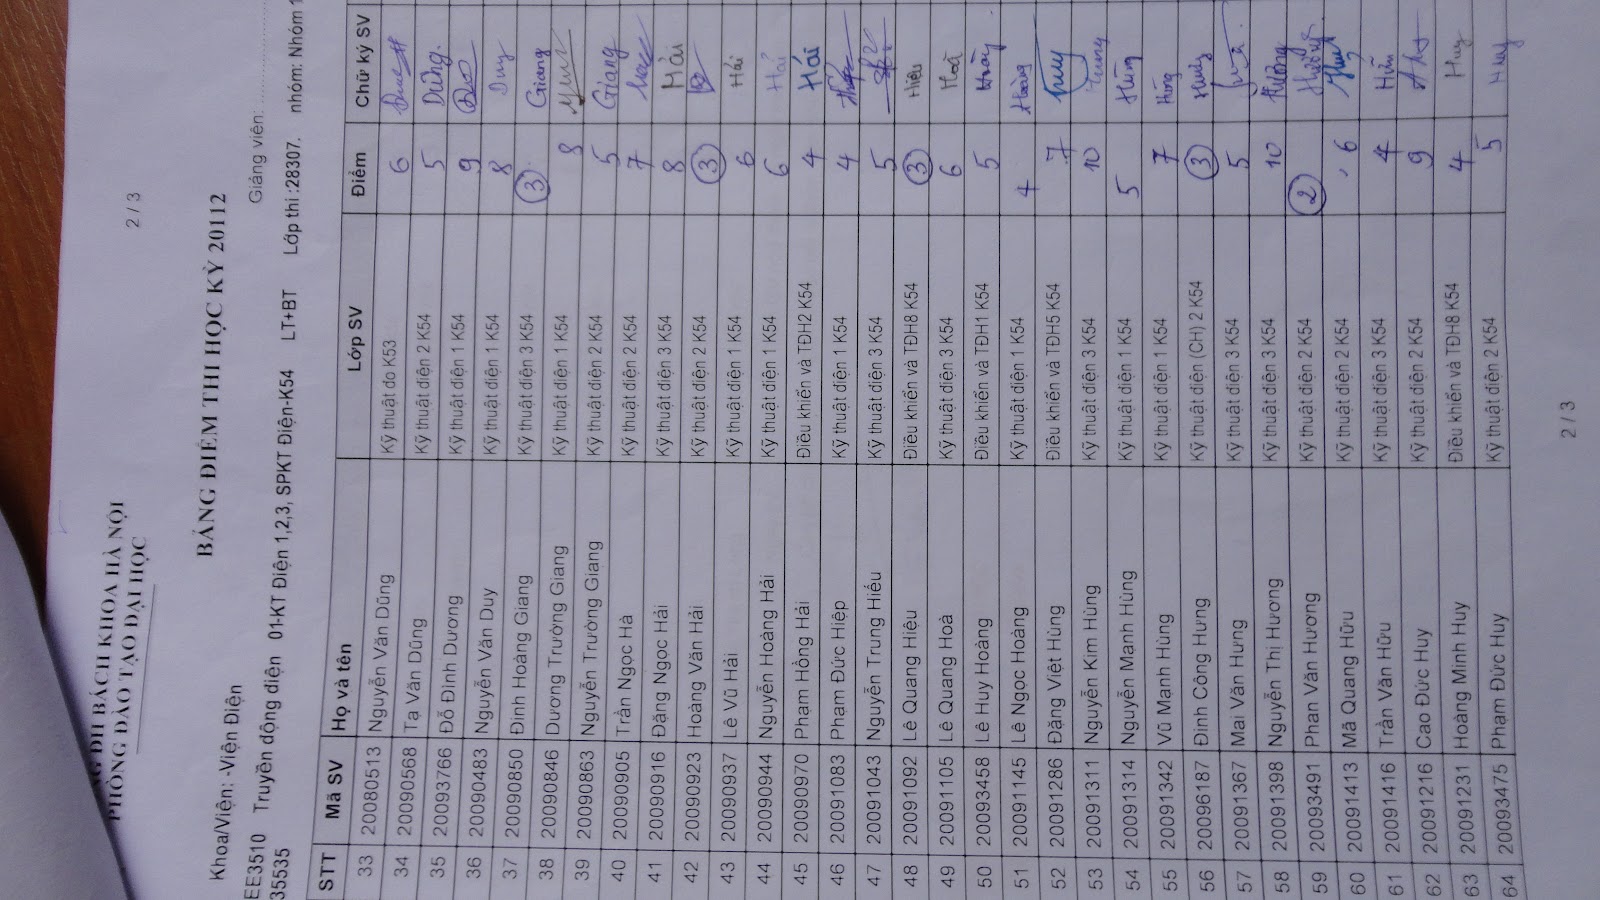 ĐH BÁCH KHOA HÀ NỘI
PHÒNG ĐÀO TẠO ĐẠI HỌC
2 / 3
BẢNG ĐIỂM THI HỌC KỲ 20112
Khoa/Viện: -Viện Điện Giảng viên:
EE3510 Truyền động điện 01-KT Điện 1,2,3, SPKT Điện-K54 LT+BT Lớp thi :28307. nhóm: Nhóm 1
35535
STT Mã SV Họ và tên Lớp SV Điểm Chữ ký SV
33 20080513 Nguyễn Văn Dũng Kỹ thuật đo K53 6
34 20090568 Tạ Văn Dũng Kỹ thuật điện 2 K54 5 Dũng
35 20093766 Đỗ Đình Dương Kỹ thuật điện 1 K54 9
36 20090483 Nguyễn Văn Duy Kỹ thuật điện 1 K54 8 Duy
37 20090850 Đinh Hoàng Giang Kỹ thuật điện 3 K54 3 Giang
38 20090846 Dương Trường Giang Kỹ thuật điện 1 K54 8
39 20090863 Nguyễn Trường Giang Kỹ thuật điện 2 K54 5 Giang
40 20090905 Trần Ngọc Hà Kỹ thuật điện 2 K54 7
41 20090916 Đặng Ngọc Hải Kỹ thuật điện 3 K54 8 Hải
42 20090923 Hoàng Văn Hải Kỹ thuật điện 2 K54 3
43 20090937 Lê Vũ Hải Kỹ thuật điện 1 K54 6 Hải
44 20090944 Nguyễn Hoàng Hải Kỹ thuật điện 1 K54 6 Hải
45 20090970 Phạm Hồng Hải Điều khiển và TĐH2 K54 4 Hải
46 20091083 Phạm Đức Hiệp Kỹ thuật điện 1 K54 4
47 20091043 Nguyễn Trung Hiếu Kỹ thuật điện 3 K54 5
48 20091092 Lê Quang Hiệu Điều khiển và TĐH8 K54 3 Hiệu
49 20091105 Lê Quang Hoà Kỹ thuật điện 3 K54 6 Hoà
50 20093458 Lê Huy Hoàng Điều khiển và TĐH1 K54 5 Hoàng
51 20091145 Lê Ngọc Hoàng Kỹ thuật điện 1 K54 4 Hoàng
52 20091286 Đặng Việt Hùng Điều khiển và TĐH5 K54 7
53 20091311 Nguyễn Kim Hùng Kỹ thuật điện 3 K54 10
54 20091314 Nguyễn Mạnh Hùng Kỹ thuật điện 1 K54 5 Hùng
55 20091342 Vũ Mạnh Hùng Kỹ thuật điện 1 K54 7 Hùng
56 20096187 Đinh Công Hưng Kỹ thuật điện (CH) 2 K54 3
57 20091367 Mai Văn Hưng Kỹ thuật điện 3 K54 5
58 20091398 Nguyễn Thị Hương Kỹ thuật điện 3 K54 10 Hương
59 20093491 Phan Văn Hương Kỹ thuật điện 2 K54 2 Hương
60 20091413 Mã Quang Hữu Kỹ thuật điện 2 K54 6
61 20091416 Trần Văn Hữu Kỹ thuật điện 3 K54 4 Hữu
62 20091216 Cao Đức Huy Kỹ thuật điện 2 K54 9
63 20091231 Hoàng Minh Huy Điều khiển và TĐH8 K54 4 Huy
64 20093475 Phạm Đức Huy Kỹ thuật điện 2 K54 5 Huy
2 / 3